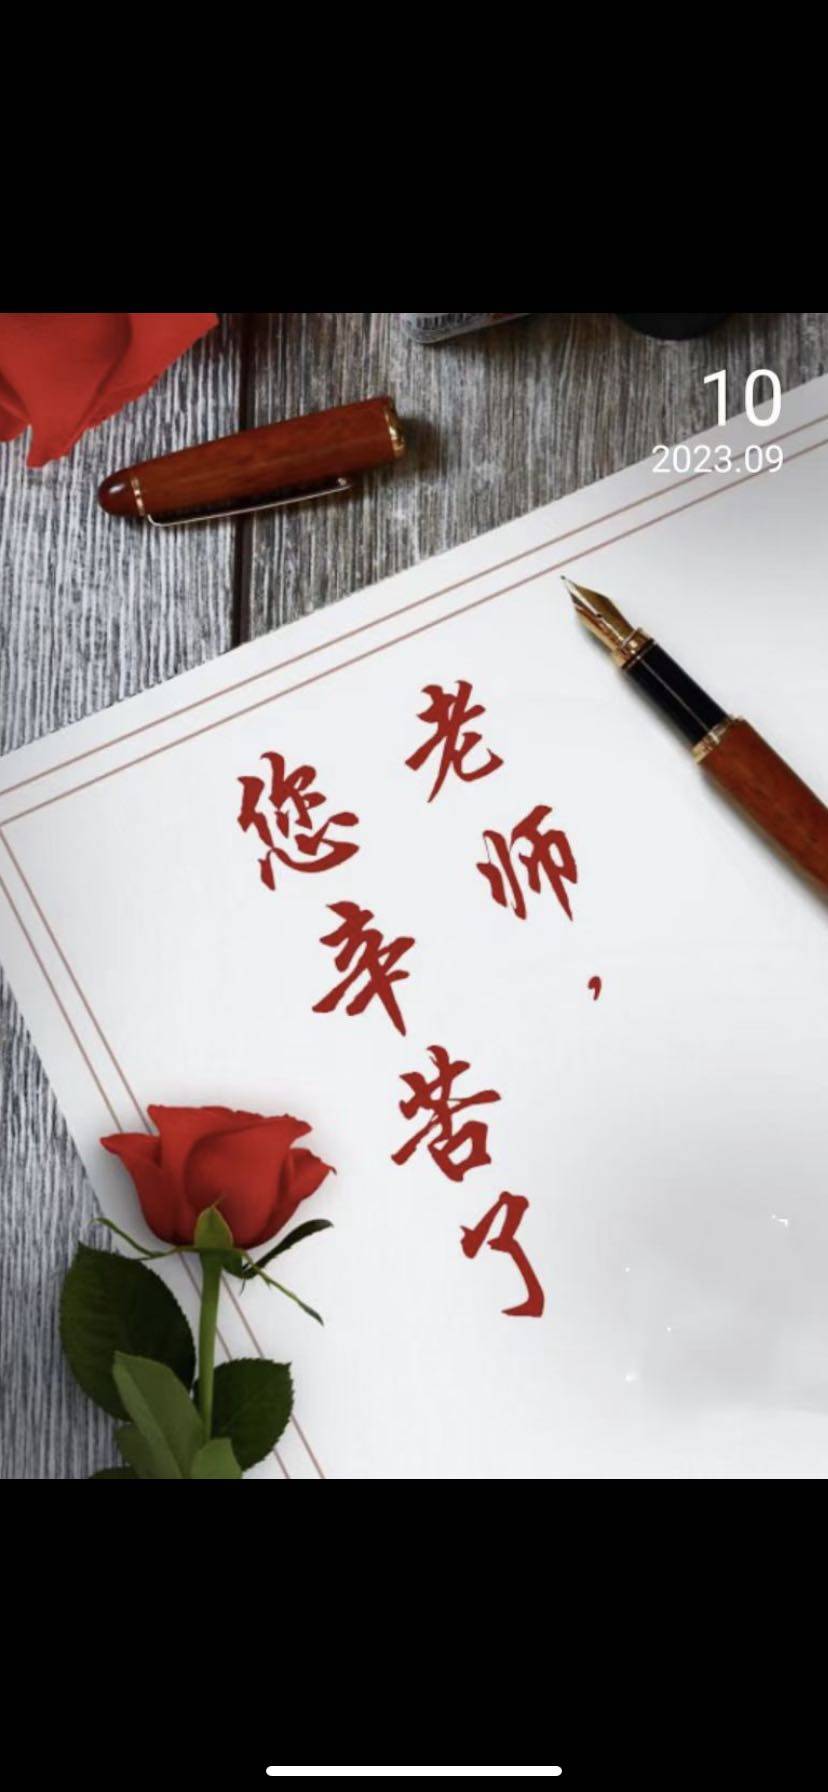 10
2023.09
老师，
您辛苦了